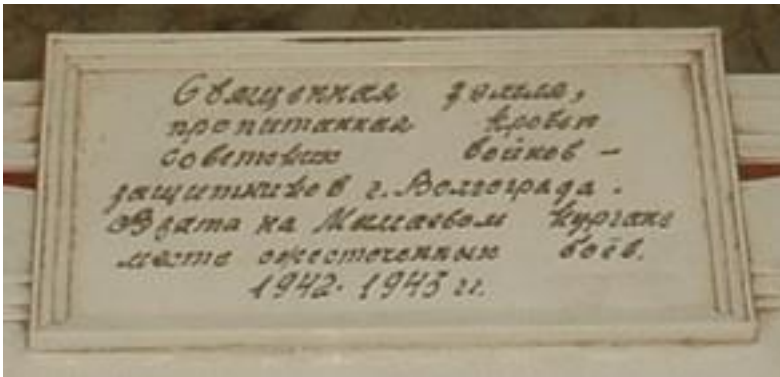 Священная земля,
пропитанная кровью
советских воинов -
защитников г. Волгограда.
Взята на Мамаевом кургане
месте ожесточенных боёв.
1942-1943 гг.